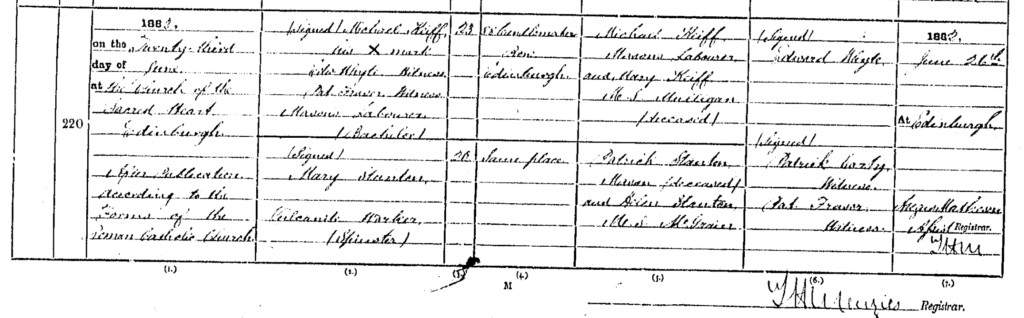 1883.
on the Twenty third
day of June
at The Church of the
Sacred Heart
Edinburgh
After Publication
according to the
Forms of the
Roman Catholic Church
220
(Signed) Michael Keiff
his X mark
Edw Whyte Witness
Pat Fraser Witness
Masons Labourer
(Bachelor)
(Signed)
Mary Stanton
Vulcanite Worker
(Spinster)
23
26
Candlemaker
Row
Edinburgh
Same place
Michael Keiff
Masons Labourer
and Mary Keiff
M. S. Mulligan
(deceased)
Patrick Stanton
Mason (deceased)
and Stanton
M. S.
(Signed)
Edward Whyte
(Signed)
Patrick
Witness.
Pat Fraser
Witness
1883.
June 26th
At Edinburgh
Mathewson
Asst Registrar.
THM
(1.) (2.) (3.) (4.) (5.) (6.) (7.)
M
THMenzies Registrar.